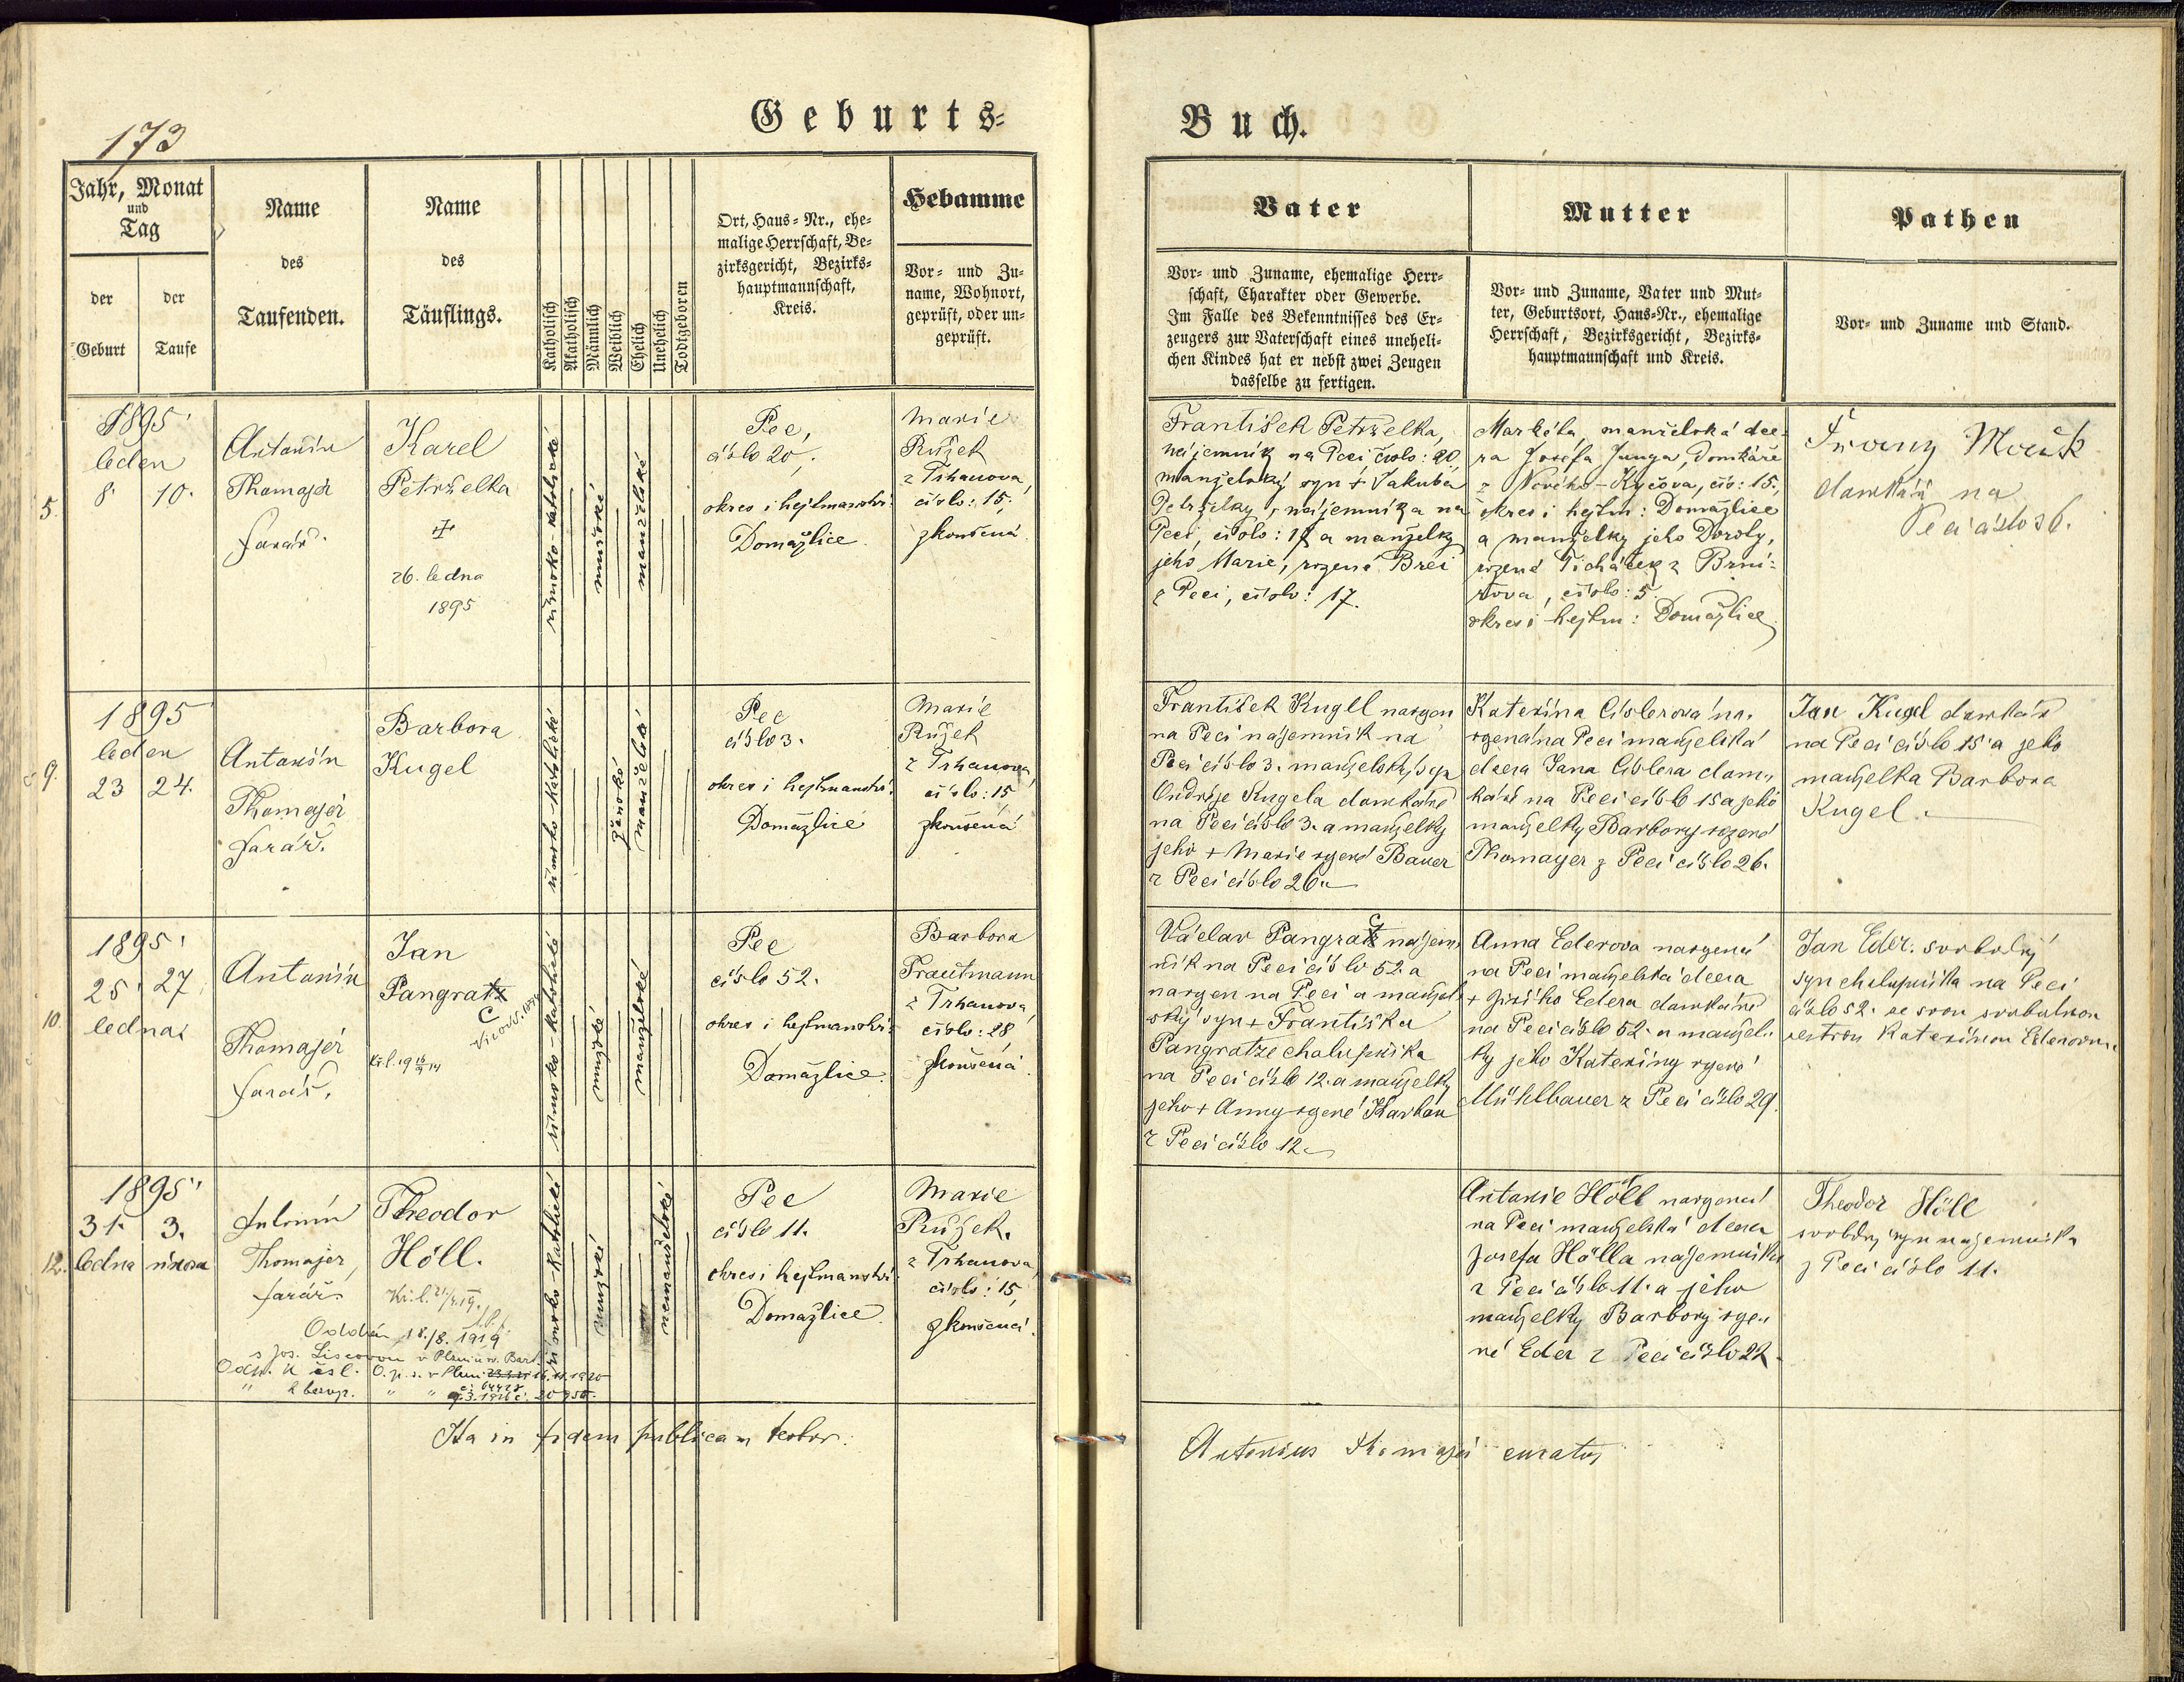 173
Geburts=
Buch.
Jahr, Monat
und
Tag
der
Geburt
der
Taufe
Name
des
Taufenden.
Name
des
Täuflings.
Katholisch
Akatholisch
Männlich
Weiblich
Ehelich
Unehelich
Todtgeboren
Ort, Haus=Nr., ehe=
malige Herrschaft, Be=
zirksgericht, Bezirks=
hauptmannschaft,
Kreis.
Hebamme
Vor= und Zu=
name, Wohnort,
geprüft, oder un=
geprüft.
Vater
Vor= und Zuname, ehemalige Herr=
schaft, Charakter oder Gewerbe.
Im Falle des Bekenntnisses des Er=
zeugers zur Vaterschaft eines uneheli=
chen Kindes hat er nebst zwei Zeugen
dasselbe zu fertigen.
Mutter
Vor= und Zuname, Vater und Mut=
ter, Geburtsort, Haus=Nr., ehemalige
Herrschaft, Bezirksgericht, Bezirks=
hauptmannschaft und Kreis.
Pathen
Vor= und Zuname und Stand.
5.
1895
leden
8 10.
Antonín
Thomajer
farář.
Karel
Petrželka
26. ledna
1895
římsko-katolické
mužské
manželské
Pec,
číslo 20,
okres i hejtmanství
Domažlice.
Marie
Růžek
z Trhanova,
číslo: 15,
zkoušená.
František Petrželka,
nájemník na Peci číslo: 20,
manželský syn + Jakuba
Petrželky, nájemníka na
Peci, číslo: 17 a manželky
jeho Marie, rozené Brei
z Peci, číslo: 17.
Markéta, manželská dce-
ra Josefa Junga, domkáře
z Nového-Kyčova, čís: 15,
okres i hejtm: Domažlice
a manželky jeho Doroty,
rozené Ticháček z Brní-
řova, číslo: 5.
okres i hejtm: Domažlice.
domkář na
Peci číslo 36.
9.
1895
leden
23 24.
Antonín
Thomajer
farář.
Barbora
Kugel
římsko-katolické
ženské
manželské
Pec
číslo 3.
okres i hejtmanství
Domažlice
Marie
Růžek
z Trhanova,
číslo: 15
zkoušená
František Kugel narozen
na Peci nájemník na
Peci číslo 3. manželský syn
Ondreje Kugela domkáře
na Peci číslo 3. a manželky
jeho + Marie rozené Bauer
z Peci číslo 26.
Kateřina Cislerova na-
rozena na Peci manželská
dcera Jana Cislera dom-
káře na Peci číslo 15 a jeho
manželky Barbory rozené
Thomayer z Peci číslo 26.
Jan Kugel domkář
na Peci číslo 15 a jeho
manželka Barbora
Kugel.
10.
1895
25 27
ledna
Antonín
Thomajer
farář.
Jan
Pangratz
c
římsko-katolické
mužské
manželské
Pec
číslo 52.
okres i hejtmanství
Domažlice.
Barbora
Trautmann
z Trhanova,
číslo: 28,
zkoušená
Václav Pangratz nájem-
c
ník na Peci číslo 52. a
narozen na Peci a manžel-
ský syn + Františka
Pangratze chalupníka
na Peci číslo 12. a manželky
jeho + Anny rozené Karban
z Peci číslo 12.
Anna Ederova narozená
na Peci manželská dcera
+ Jiřího Edera domkáře
na Peci číslo 52. a manžel-
ky jeho Kateřiny rozené
Mühlbauer z Peci číslo 29.
Jan Eder. svobodný
syn chalupníka na Peci
číslo 52. se svou svobodnou
sestrou Kateřinou Ederovou.
12.
1895
31. 3.
ledna února
Antonín
Thomajer,
farář.
Theodor
Höll.
Oddán 18./8. 1919
římsko-katolické
mužské
nemanželské
Pec
číslo 11.
okres i hejtmanství
Domažlice.
Marie
Růžek.
z Trhanova,
číslo: 15,
zkoušená.
Antonie Höll narozená
na Peci manželská dcera
Josefa Hölla nájemníka
z Peci číslo 11. a jeho
manželky Barbory roze-
né Eder z Peci číslo 22.
Theodor Höll
svobodný syn nájemníka
z Peci číslo 11.
Ita in fidem publicam testor:
Antonius Thomajer curatus